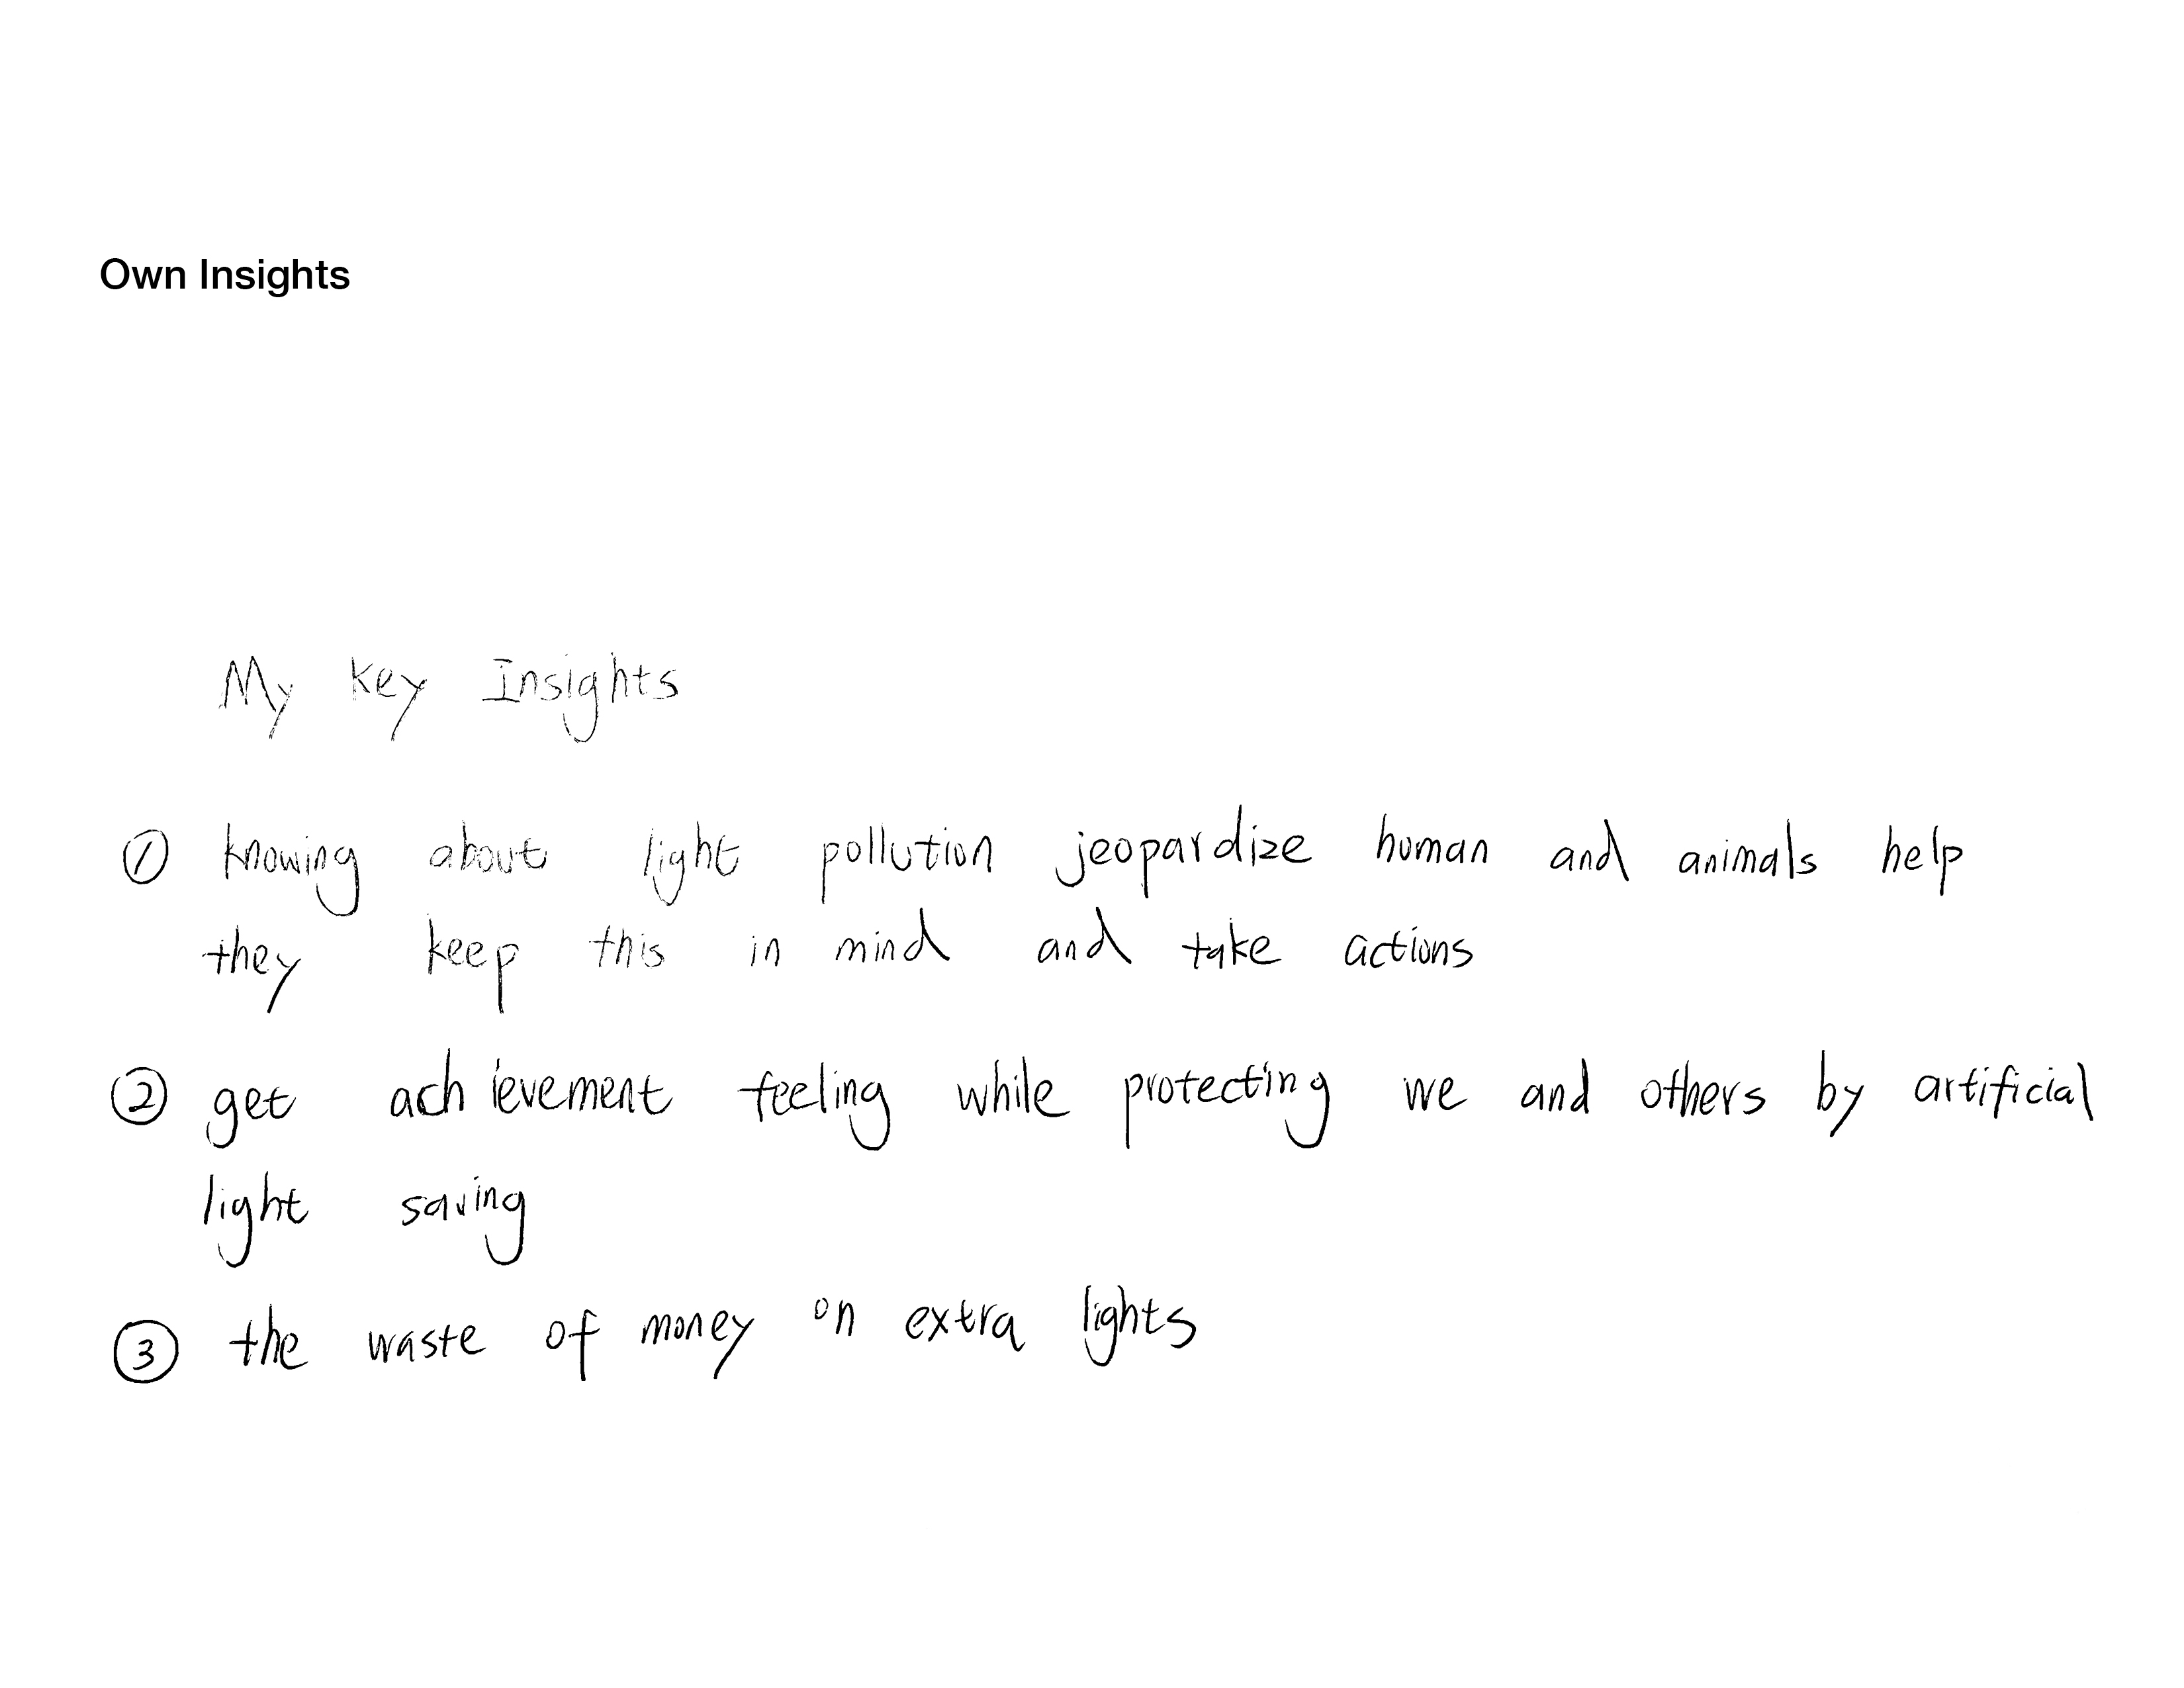 Own Insights
My key Insights
① knowing about light pollution jeopardize human and animals help
they keep this in mind and take actions
② get achievement feeling while protecting we and others by artificial
light saving
③ the waste of money on extra lights